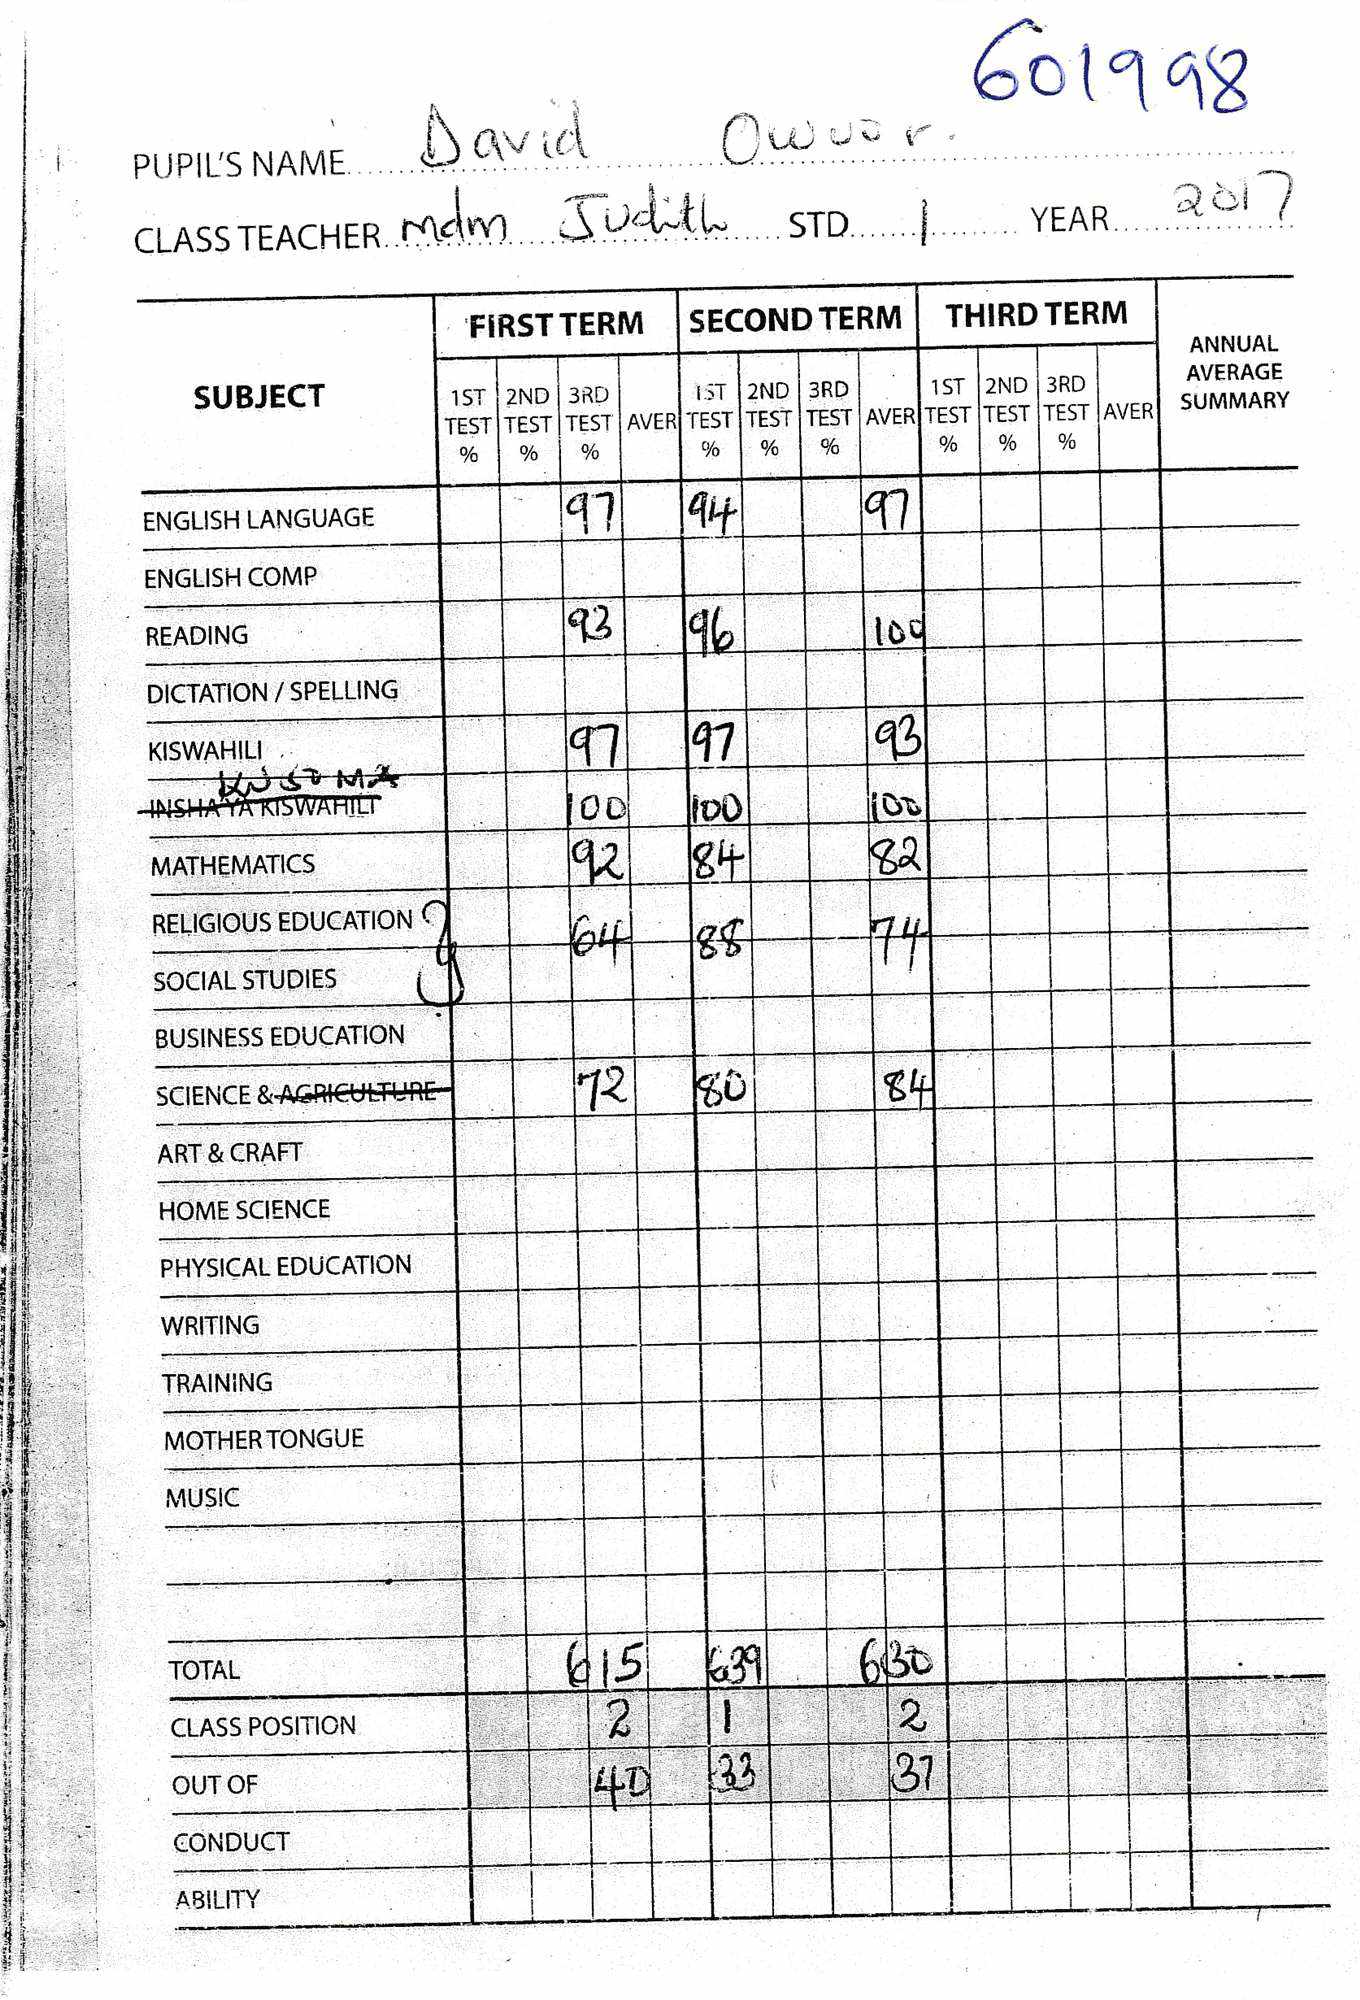 601998
PUPIL'S NAME David Owuor.
CLASS TEACHER mdm Judith STD 1 YEAR 2017
SUBJECT FIRST TERM SECOND TERM THIRD TERM ANNUAL AVERAGE SUMMARY
1ST TEST % 2ND TEST % 3RD TEST % AVER 1ST TEST % 2ND TEST % 3RD TEST % AVER 1ST TEST % 2ND TEST % 3RD TEST % AVER
ENGLISH LANGUAGE 97 94 97
ENGLISH COMP
READING 93 96 100
DICTATION / SPELLING
KISWAHILI 97 97 93
KUSOMA
INSHA YA KISWAHILI 100 100 100
MATHEMATICS 92 84 82
RELIGIOUS EDUCATION 64 88 74
SOCIAL STUDIES
BUSINESS EDUCATION
SCIENCE & AGRICULTURE 72 80 84
ART & CRAFT
HOME SCIENCE
PHYSICAL EDUCATION
WRITING
TRAINING
MOTHER TONGUE
MUSIC
TOTAL 615 639 630
CLASS POSITION 2 1 2
OUT OF 40 33 37
CONDUCT
ABILITY